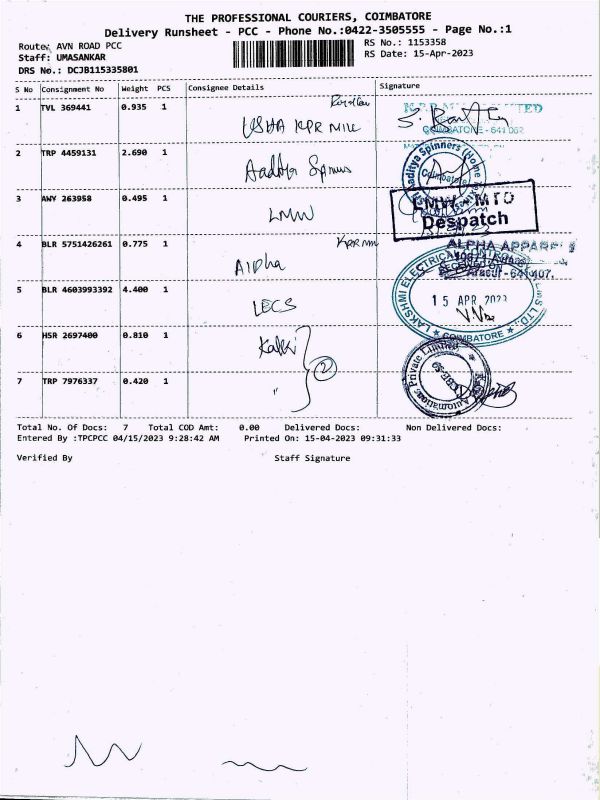 THE PROFESSIONAL COURIERS, COIMBATORE
Delivery Runsheet - PCC - Phone No.:0422-3505555 - Page No.:1
Route: AVN ROAD PCC
RS No.: 1153358
Staff: UMASANKAR
RS Date: 15-Apr-2023
DRS No.: DCJB115335801
S No Consignment No Weight PCS Consignee Details Signature
1 TVL 369441 0.935 1
USHA KPR MILL
COIMBATORE - 641 062
2 TRP 4459131 2.690 1
Aaditya Spinners (Home
Coimbatore
3 AWY 263958 0.495 1 LMW
LMW MTD
Despatch
4 BLR 5751426261 0.775 1 Alpha KPR mill
ALPHA APPAREL
5 BLR 4603993392 4.400 1 LECS
LAKSHMI ELECTRICAL
15 APR 2023
COIMBATORE
6 HSR 2697400 0.810 1 Kalki
2
7 TRP 7976337 0.420 1 "
Automations Private Limited
Total No. Of Docs: 7 Total COD Amt: 0.00 Delivered Docs: Non Delivered Docs:
Entered By :TPCPCC 04/15/2023 9:28:42 AM Printed On: 15-04-2023 09:31:33
Verified By Staff Signature